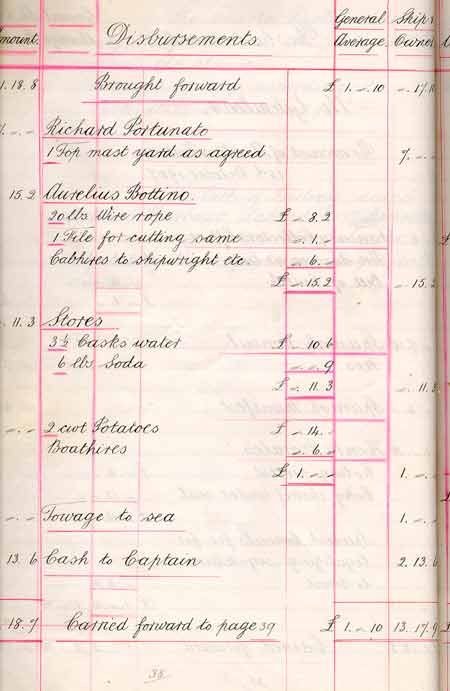 mount. Disbursements. General Average. Ship's Owner
1. 18. 8 Brought forward £ 1. ~ 10 ~. 17. 10
7. ~. ~ Richard Portunato
1 Top mast yard as agreed 7. ~. ~
15. 2 Aurelius Bottino.
20 lbs Wire rope £ ~. 8. 2
1 File for cutting same ~. 1. ~
Cabhires to shipwright etc. ~. 6. ~
£ ~. 15. 2 ~. 15. 2
11. 3 Stores
3½ Casks water £ ~. 10. 6
6 lbs Soda ~. ~. 9
£ ~. 11. 3 ~. 11. 3
~. ~ 2 cwt Potatoes £ ~. 14. ~
Boathires ~. 6. ~
£ 1. ~. ~ 1. ~. ~
~. ~ Towage to sea 1. ~. ~
13. 6 Cash to Captain 2. 13. 6
18. 7 Carried forward to page 39 £ 1. ~ 10 13. 17. 9
38.